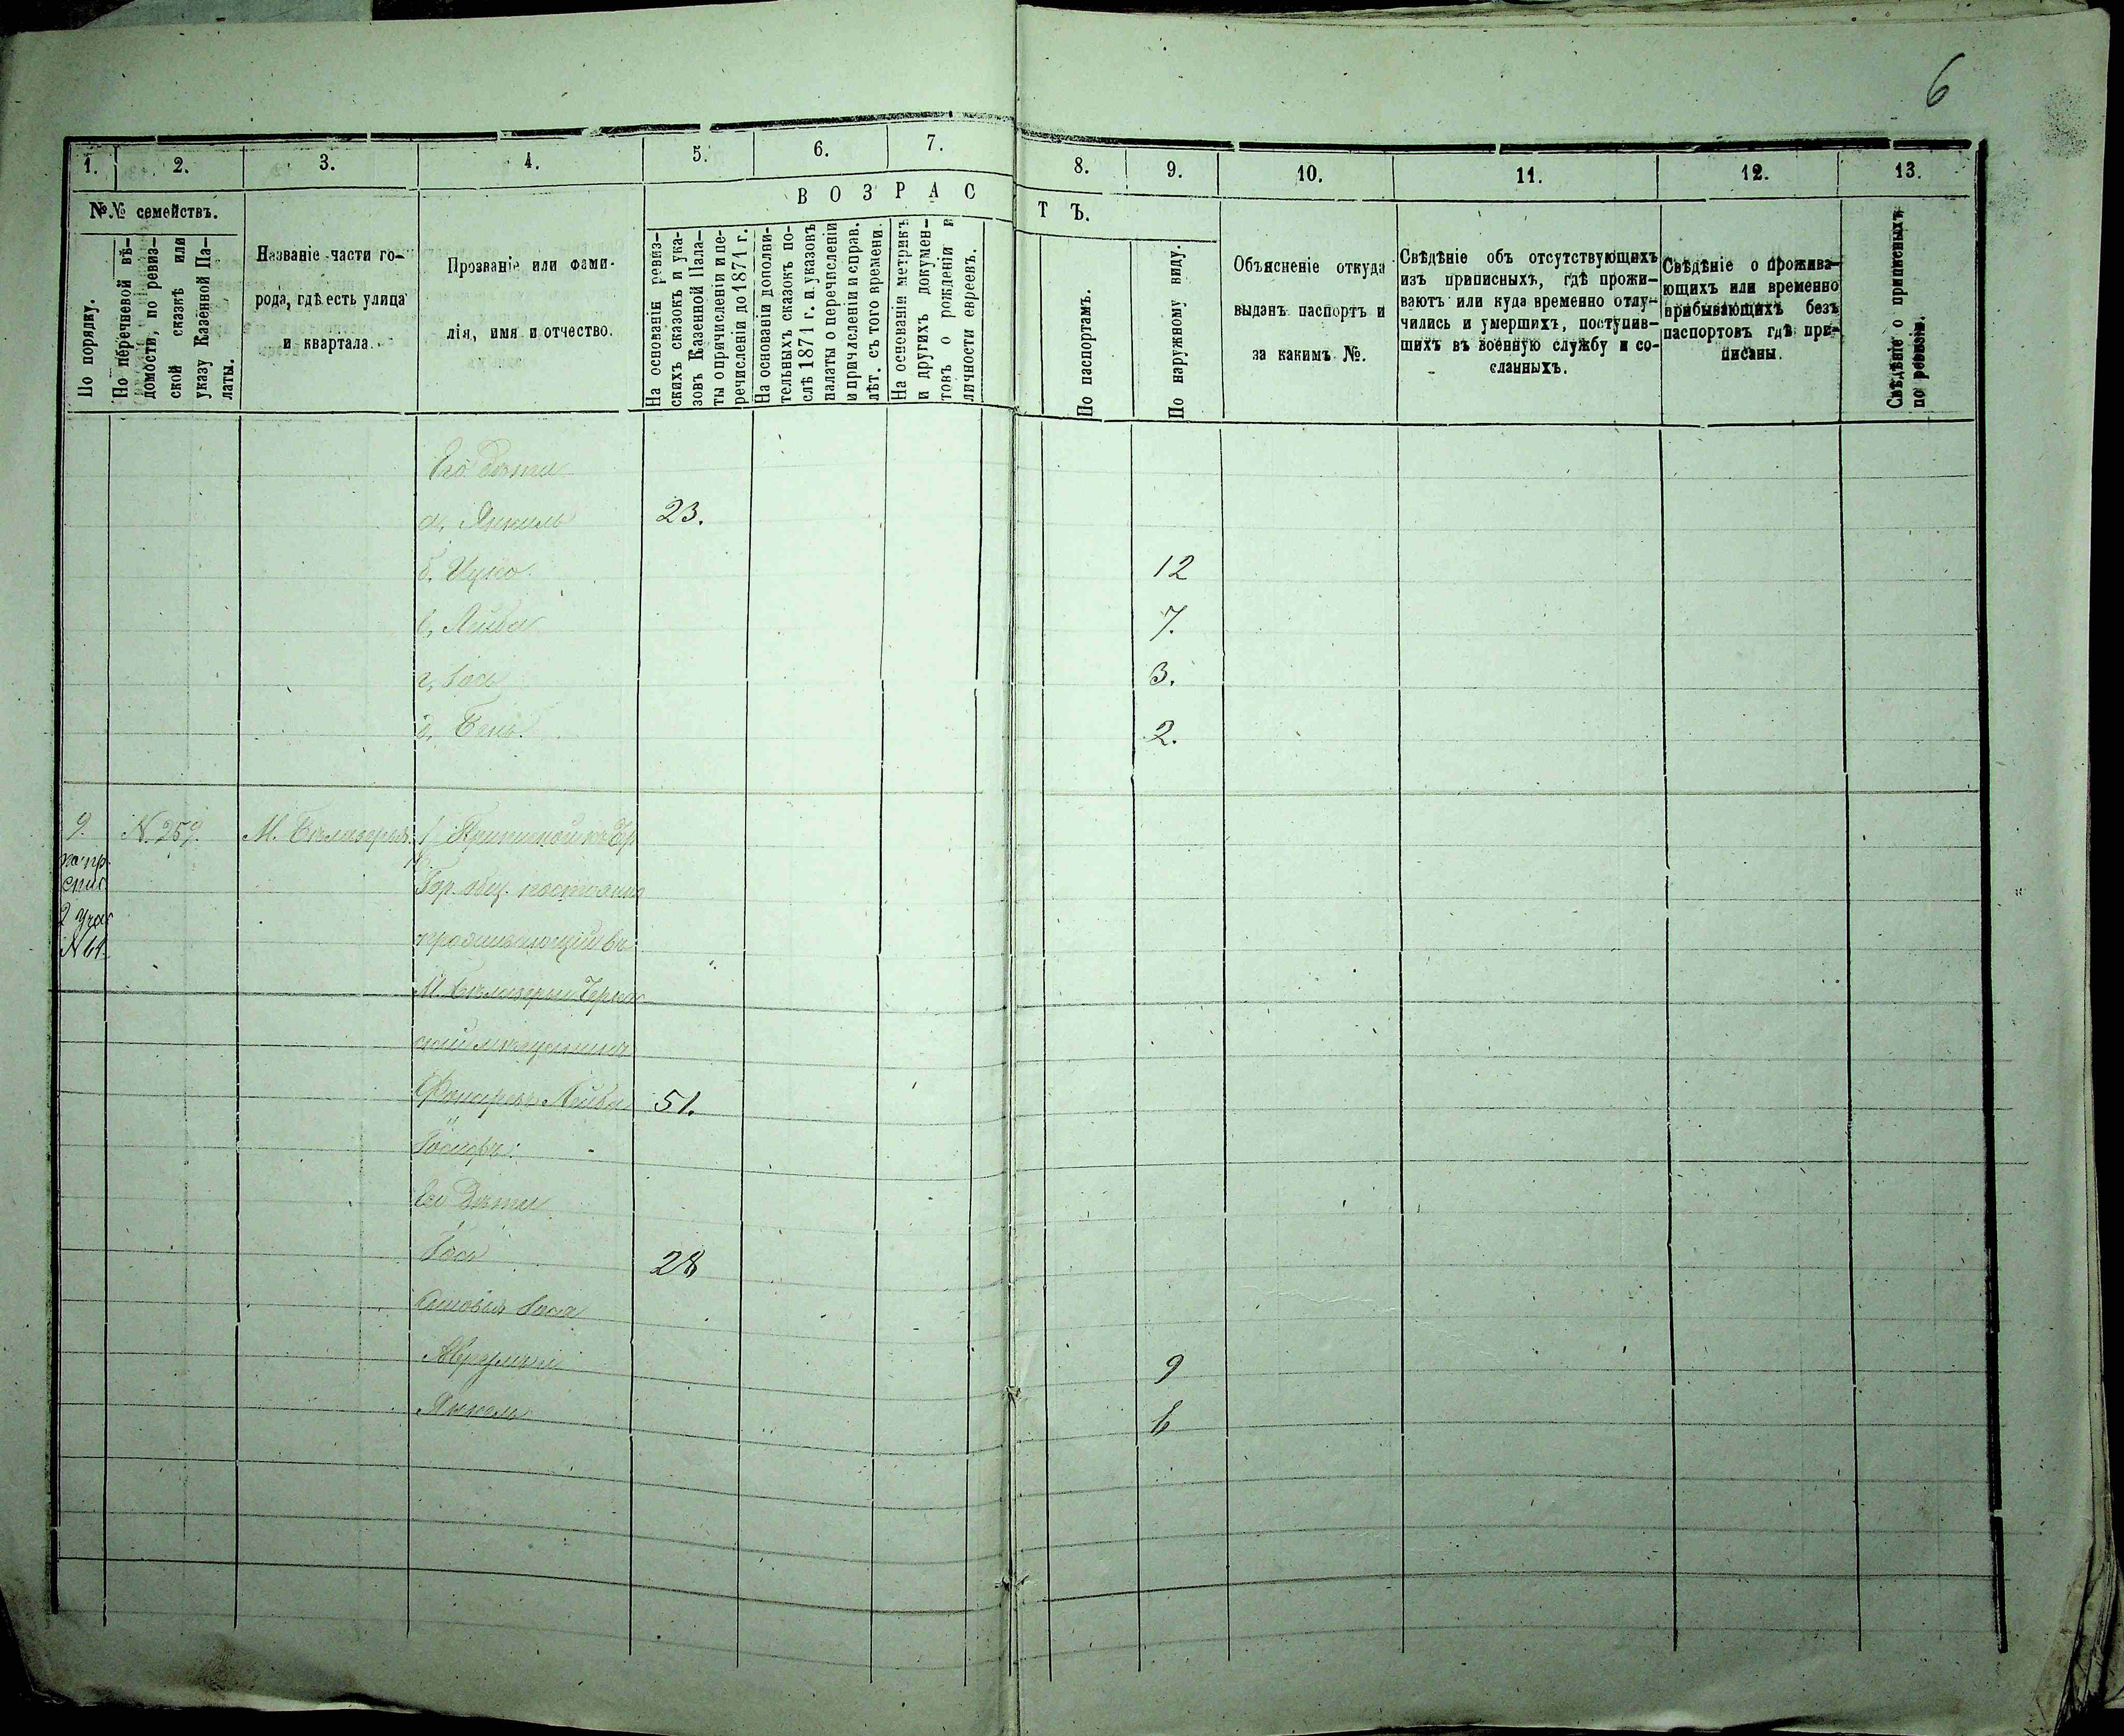 6
1. 2. 3. 4. 5. 6. 7. 8. 9. 10. 11. 12. 13.
№№ семействъ.
По порядку.
По перечневой вѣ-
домости, по ревиз-
ской сказкѣ или
указу Казенной Па-
латы.
Названіе части го-
рода, гдѣ есть улица
и квартала.
Прозваніе или фами-
лія, имя и отчество.
ВОЗРАСТЪ.
На основаніи ревиз-
скихъ сказокъ и ука-
зовъ Казенной Пала-
ты о причисленіи и пе-
речисленіи до 1871 г.
На основаніи дополни-
тельныхъ сказокъ по-
слѣ 1871 г. и указовъ
палаты о перечисленіи
и причисленіи и справ.
лѣт. съ того времени.
На основаніи метрикъ
и другихъ докумен-
товъ о рожденіи и
личности евреевъ.
По паспортамъ.
По наружному виду.
Объясненіе откуда
выданъ паспортъ и
за какимъ №.
Свѣдѣніе объ отсутствующихъ
изъ приписныхъ, гдѣ прожи-
ваютъ или куда временно отлу-
чились и умершихъ, поступив-
шихъ въ военную службу и со-
сланныхъ.
Свѣдѣніе о прожива-
ющихъ или временно
прибывающихъ безъ
паспортовъ гдѣ при-
писаны.
Свѣдѣніе о приписныхъ
по ревизіи.
Его дѣти
а, Янкель 23.
б, 12
в, Лейба 7.
г, 3.
д, 2.
9. N. 259. М. Бѣлозерье.
2 Учас
N 64.
Гор. общ. постоянно
проживающій въ
М. Бѣлозерьи Черкас
скій мѣщанинъ
Лейба 51.
Его Дѣти
28
Сыновья
Аврумъ 9
Янкель 6